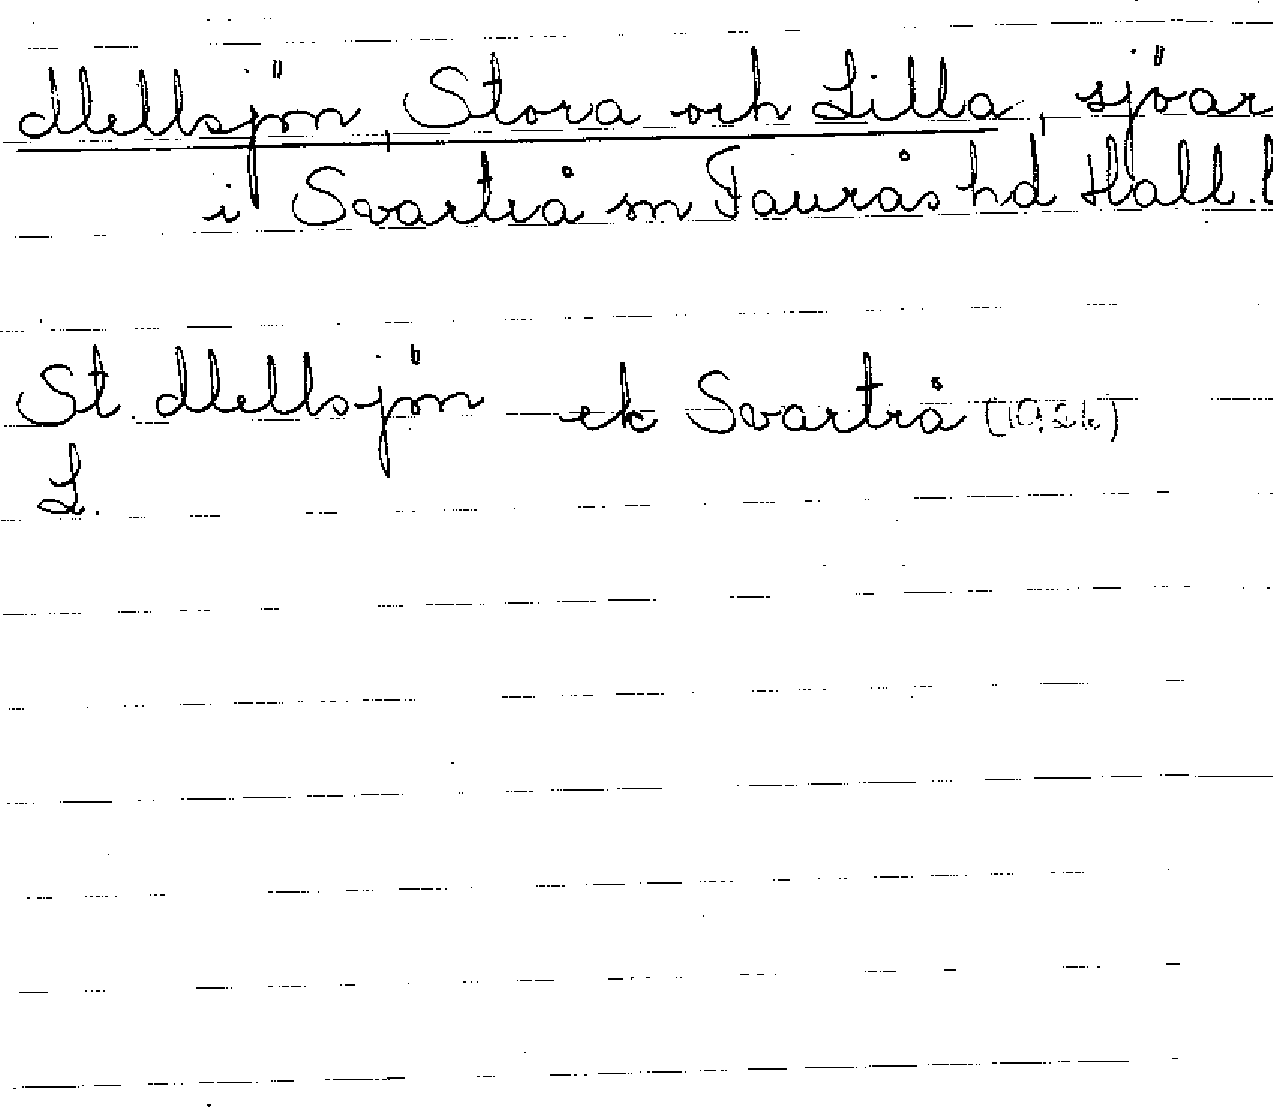 Mellsjön, Stora och Lilla, sjöar
i Svartrå sn Faurås hd Hall. l
St. Mellsjön ek Svartrå
L.